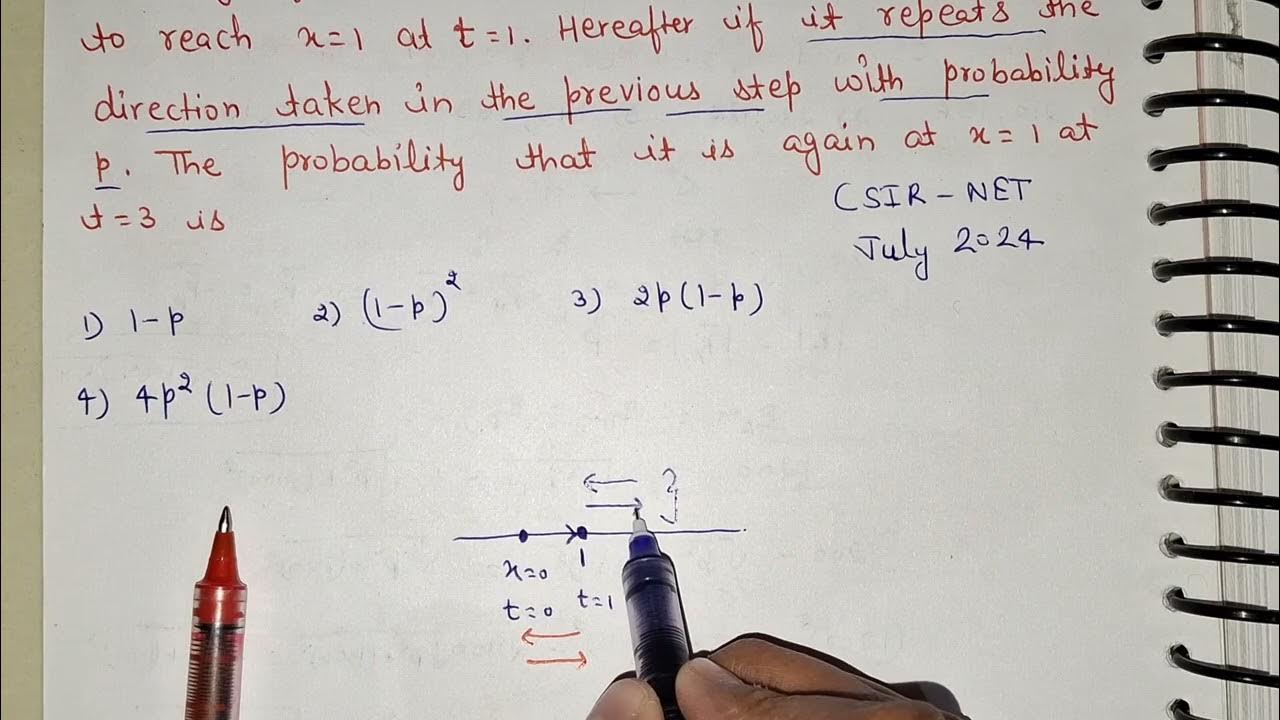 to reach x=1 at t=1. Hereafter if it repeats the
direction taken in the previous step with probability
p. The probability that it is again at x=1 at
t=3 is
CSIR-NET
July 2024
1) 1-p 2) (1-p)² 3) 2p(1-p)
4) 4p²(1-p)
x=0 1
t=0 t=1